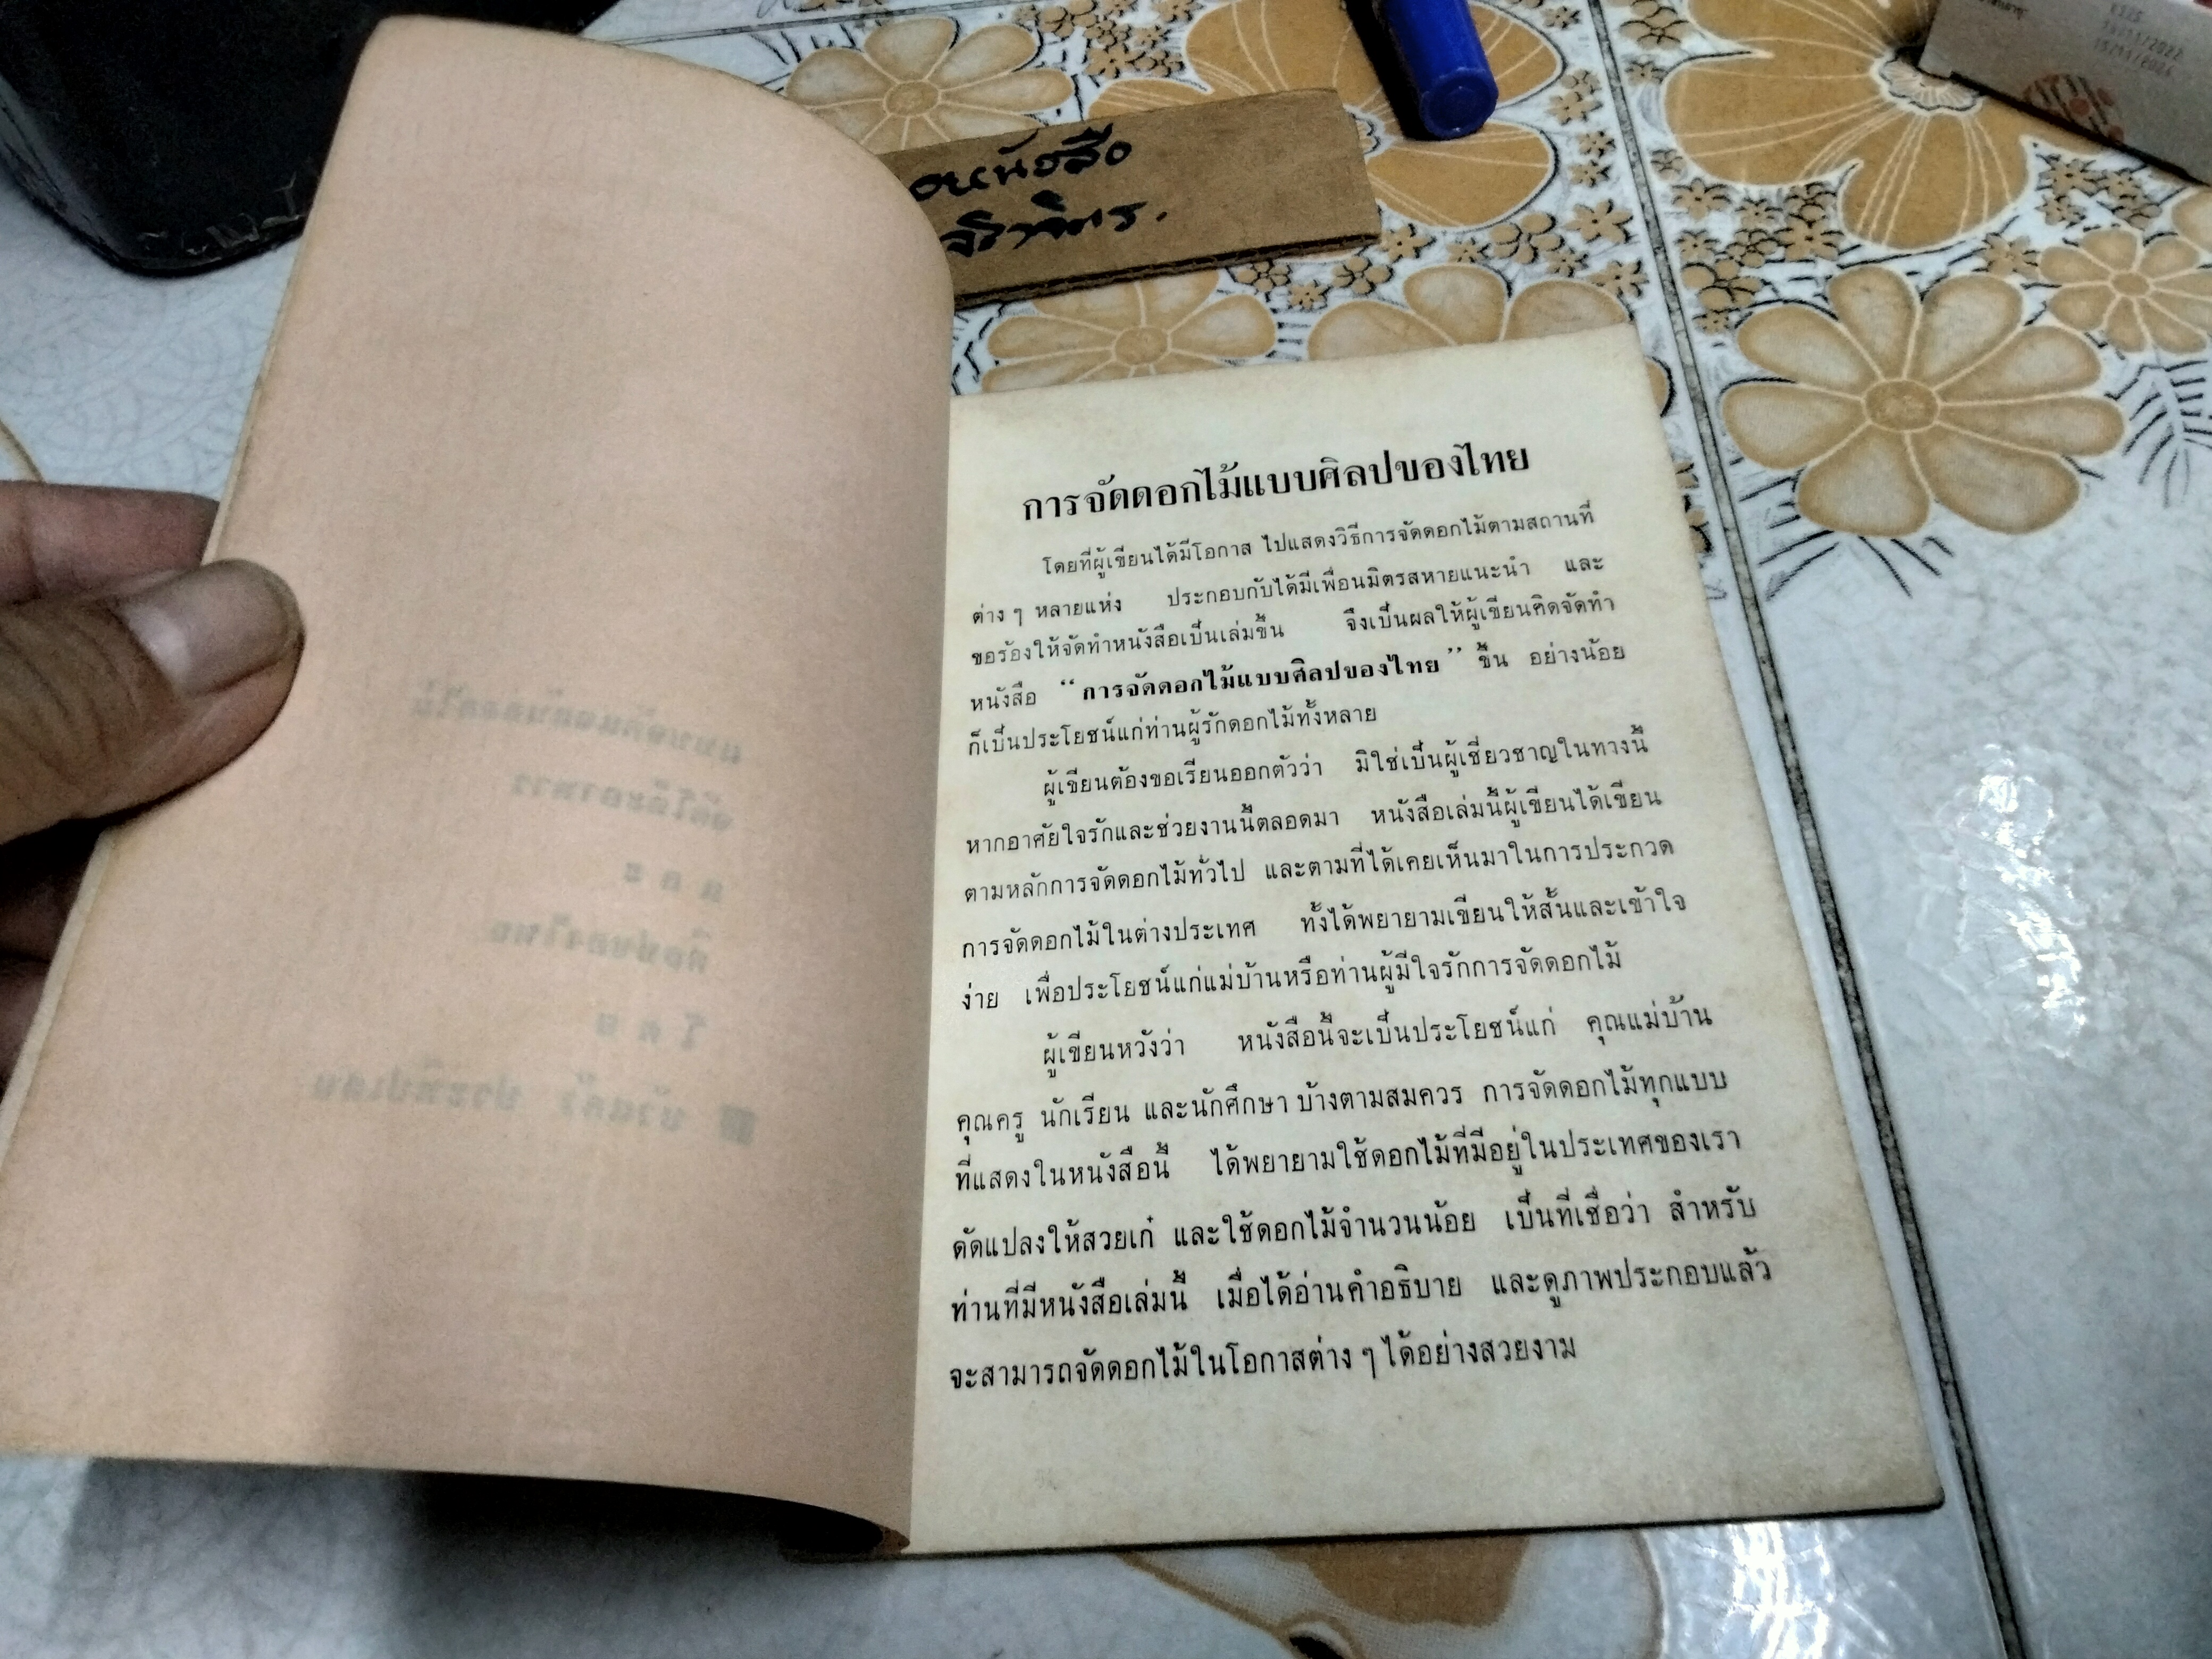 การจัดดอกไม้แบบศิลปของไทย
โดยที่ผู้เขียนได้มีโอกาส ไปแสดงวิธีการจัดดอกไม้ตามสถานที่
ต่าง ๆ หลายแห่ง ประกอบกับได้มีเพื่อนมิตรสหายแนะนำ และ
ขอร้องให้จัดทำหนังสือเป็นเล่มขึ้น จึงเป็นผลให้ผู้เขียนคิดจัดทำ
หนังสือ “การจัดดอกไม้แบบศิลปของไทย” ขึ้น อย่างน้อย
ก็เป็นประโยชน์แก่ท่านผู้รักดอกไม้ทั้งหลาย
ผู้เขียนต้องขอเรียนออกตัวว่า มิใช่เป็นผู้เชี่ยวชาญในทางนี้
หากอาศัยใจรักและช่วยงานนี้ตลอดมา หนังสือเล่มนี้ผู้เขียนได้เขียน
ตามหลักการจัดดอกไม้ทั่วไป และตามที่ได้เคยเห็นมาในการประกวด
การจัดดอกไม้ในต่างประเทศ ทั้งได้พยายามเขียนให้สั้นและเข้าใจ
ง่าย เพื่อประโยชน์แก่แม่บ้านหรือท่านผู้มีใจรักการจัดดอกไม้
ผู้เขียนหวังว่า หนังสือนี้จะเป็นประโยชน์แก่ คุณแม่บ้าน
คุณครู นักเรียน และนักศึกษา บ้างตามสมควร การจัดดอกไม้ทุกแบบ
ที่แสดงในหนังสือนี้ ได้พยายามใช้ดอกไม้ที่มีอยู่ในประเทศของเรา
ดัดแปลงให้สวยเก๋ และใช้ดอกไม้จำนวนน้อย เป็นที่เชื่อว่า สำหรับ
ท่านที่มีหนังสือเล่มนี้ เมื่อได้อ่านคำอธิบาย และดูภาพประกอบแล้ว
จะสามารถจัดดอกไม้ในโอกาสต่าง ๆ ได้อย่างสวยงาม